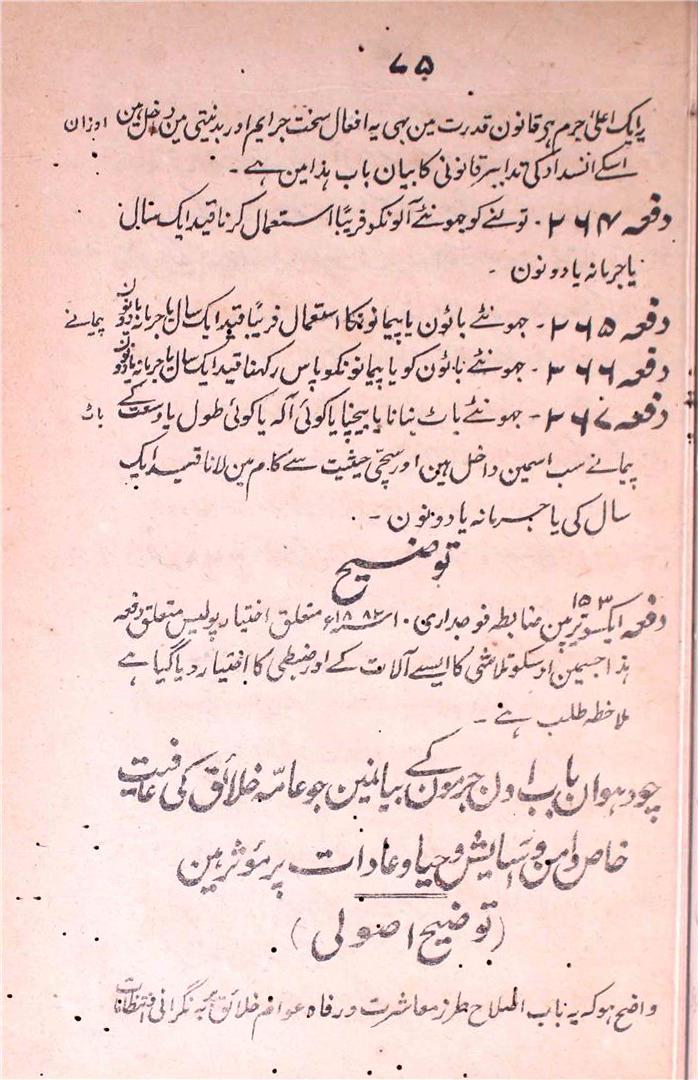 ۷۵
پر ایک اعلیٰ جرم ہر قانون قدرت مین بہی یہ افعال سخت جرایم اور بدنیتی مین داخل ہین اوزان
اسکے انسداد کی تدابیر قانونی کا بیان باب ہذا مین ہے ۔
دفعہ ۲۶۴ ۔ تولنے کو جہوٹے آلونکو فریبًا استعمال کرنا قید ایک سال
یا جرمانہ یا دونون ۔
دفعہ ۲۶۵ ۔ جہوٹے باٹون یا پیمانونکا استعمال فریبًا قید ایک سال یا جرمانہ یا دونون پیمانے
دفعہ ۲۶۶ ۔ جہوٹے باٹون کو یا پیمانونکو پاس رکہنا قید ایک سال یا جرمانہ یا دونون
دفعہ ۲۶۷ ۔ جہوٹے باٹ بنانا یا بیچنا یا کوئی آلہ یا کوئی طول یا وسعت کے باٹ
پیمانے سب اسمین داخل ہین اور سچی حیثیت سے کام مین لانا قید ایک
سال کی یا جرمانہ یا دونون ۔
توضیح
دفعہ ایکسو ترپن ۱۵۳ ضابطہ فوجداری ۱۰ ۱۸۸۲ء متعلق اختیار پولیس متعلق دفعہ
ہذا جسمین اوسکو تلاشی کا ایسے آلات کے اور ضبطی کا اختیار دیا گیا ہے
ملاخطہ طلب ہے ۔
چودہوان باب اون جرمون کے بیانمین جو عامّہ خلائق کی عافیت
خاص و امن و آسایش و حیا و عادات پر مؤثر ہین
(توضیح اصولی)
واضح ہو کہ یہ باب اصلاح طرز معاشرت و رفاہ عوام خلائق پر بہ نگرانی انتظامات